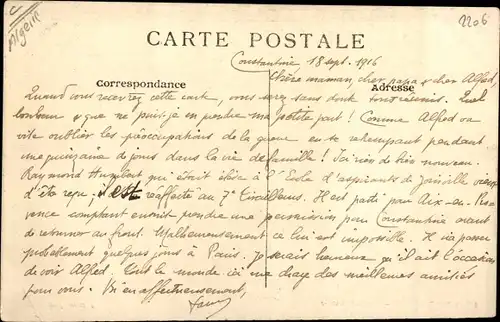 Algérie
2206
CARTE POSTALE
Constantine 18 sept. 1916
Chère maman, cher papa & cher Alfred,
Correspondance
Adresse
Quand vous recevrez cette carte, vous serez sans doute tous réunis. Quel
bonheur & que ne puis-je en prendre ma petite part ! Comme Alfred va
vite oublier les préoccupations de la guerre en se retrempant pendant
une quinzaine de jours dans la vie de famille ! Ici rien de très nouveau.
Raymond Humbert qui était élève à l'Ecole d'aspirants de Joinville vient
d'être reçu, il est réaffecté au 7e Tirailleurs. Il est parti pour Aix-en-Pro-
vence comptant ensuite prendre une permission pour Constantine avant
de retourner au front. Malheureusement ce lui est impossible. Il va passer
probablement quelques jours à Paris. Je serais heureux qu'il ait l'occasion
de voir Alfred. Tout le monde ici me charge des meilleures amitiés
pour vous. Bien affectueusement,